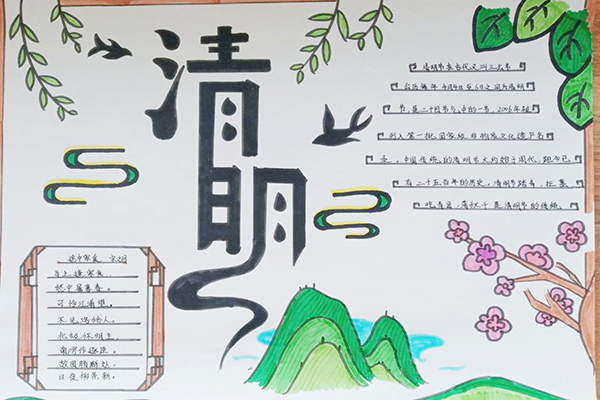 清明
清明节在古代又叫三
节
公历每年4月4日至6日之间为清明
节,是二十四节气中的一节,2006年被
列入第一批国家级非物质文化遗产名
录。中国传统的清明节大约始于周代,距今已
有二千五百年的历史,清明节踏青、扫墓、
吃青团、荡秋千是清明节的传统。
途中寒食 宋之问
马上逢寒食,
愁中属暮春。
可怜江浦望,
不见洛桥人。
北极怀明主,
南溟作逐臣。
故园肠断处,
日夜柳条新。